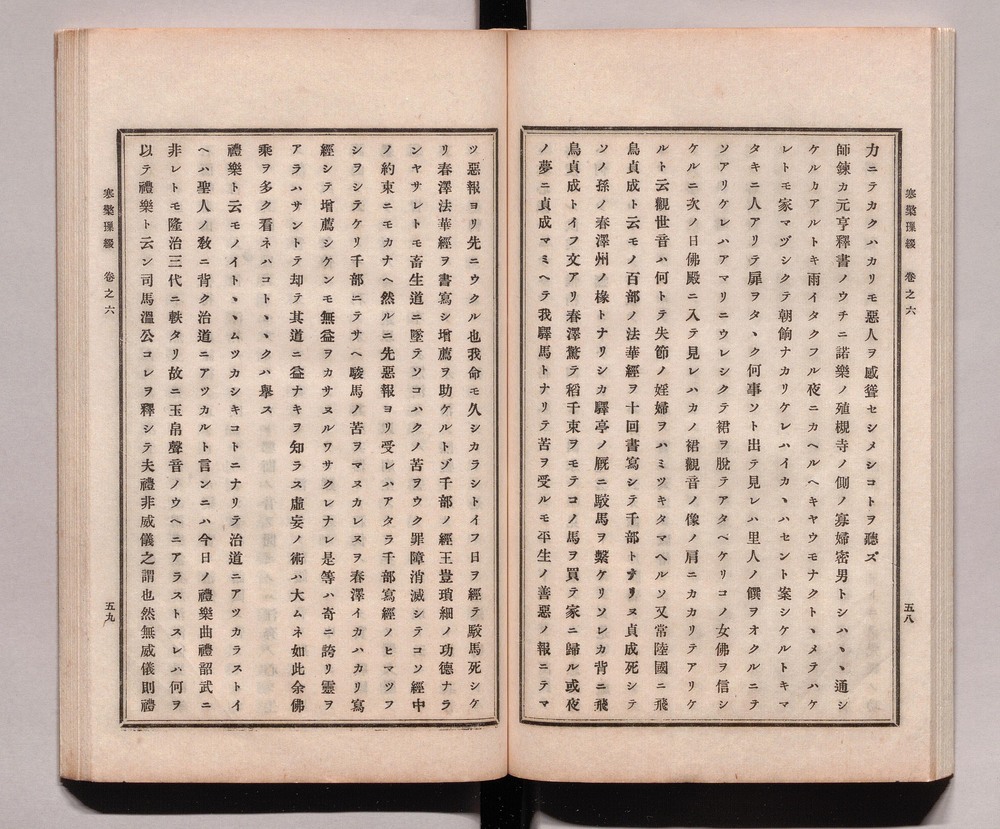 寒檠璅綴　卷之六
五八
力ニテカクハカリモ惡人ヲ感聳セシメシコトヲ聽ズ
師鍊カ元亨釋書ノウチニ諾樂ノ殖槻寺ノ側ノ寡婦密男トシハヽヽ通シ
ケルカアルトキ雨イタクフル夜ニカヘルヘキヤウモナクトヽメテハケ
レトモ家マヅシクテ朝餉ナカリケレハイカヽハセント案シケルトキマ
タキニ人アリテ扉ヲタヽク何事ソト出テ見レハ里人ノ饌ヲオクルニテ
ソアリケレハアマリニウレシクテ裙ヲ脫テアタヘケリコノ女佛ヲ信シ
ケルニ次ノ日佛殿ニ入テ見レハカノ裙觀音ノ像ノ肩ニカカリテアリケ
ルト云觀世音ハ何トテ失節ノ婬婦ヲハミツキタマヘルソ又常陸國ニ飛
鳥貞成ト云モノ百部ノ法華經ヲ十回書寫シテ千部トナリヌ貞成死シテ
ソノ孫ノ春澤州ノ掾トナリシカ驛亭ノ厩ニ駮馬ヲ繫ケリソレカ背ニ飛
鳥貞成トイフ文アリ春澤驚テ稻千束ヲモテコノ馬ヲ買テ家ニ歸ル或夜
ノ夢ニ貞成マミヘテ我驛馬トナリテ苦ヲ受ルモ平生ノ善惡ノ報ニテマ
ツ惡報ヨリ先ニウクル也我命モ久シカラシトイフ日ヲ經テ駮馬死シケ
リ春澤法華經ヲ書寫シ增薦ヲ助ケルトゾ千部ノ經王豈瑣細ノ功德ナラ
ンヤサレトモ畜生道ニ墜テソコハクノ苦ヲウク罪障消滅シテコソ經中
ノ約束ニモカナヘ然ルニ先惡報ヨリ受レハアタラ千部寫經ノヒマツフ
シヲシテケリ千部ニテサヘ駿馬ノ苦ヲマヌカレヌヲ春澤イカハカリ寫
經シテ增薦シケンモ無益ヲカサヌルワサクレナレ是等ハ奇ニ誇リ靈ヲ
アラハサントテ却テ其道ニ益ナキヲ知ラス虛妄ノ術ハ大ムネ如此余佛
乘ヲ多ク看ネハコトヽヽクハ擧ス
禮樂ト云モノイトヽヽムツカシキコトニナリテ治道ニアツカラストイ
ヘハ聖人ノ敎ニ背ク治道ニアツカルト言ンニハ今日ノ禮樂曲禮韶武ニ
非レトモ隆治三代ニ軼タリ故ニ玉帛聲音ノウヘニアラストスレハ何ヲ
以テ禮樂ト云ン司馬溫公コレヲ釋シテ夫禮非威儀之謂也然無威儀則禮
寒檠璅綴　卷之六
五九